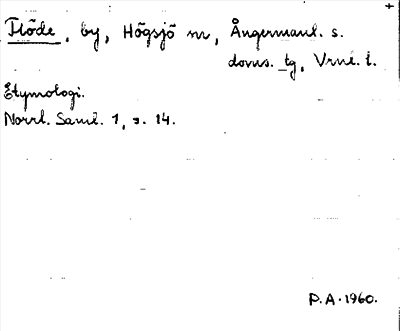 Flöde, by, Högsjö sn, Ångermanl. s.
doms. tg, Vrnl. l.
Etymologi.
Norrl. Saml. 1, s. 14.
P.A. 1960.